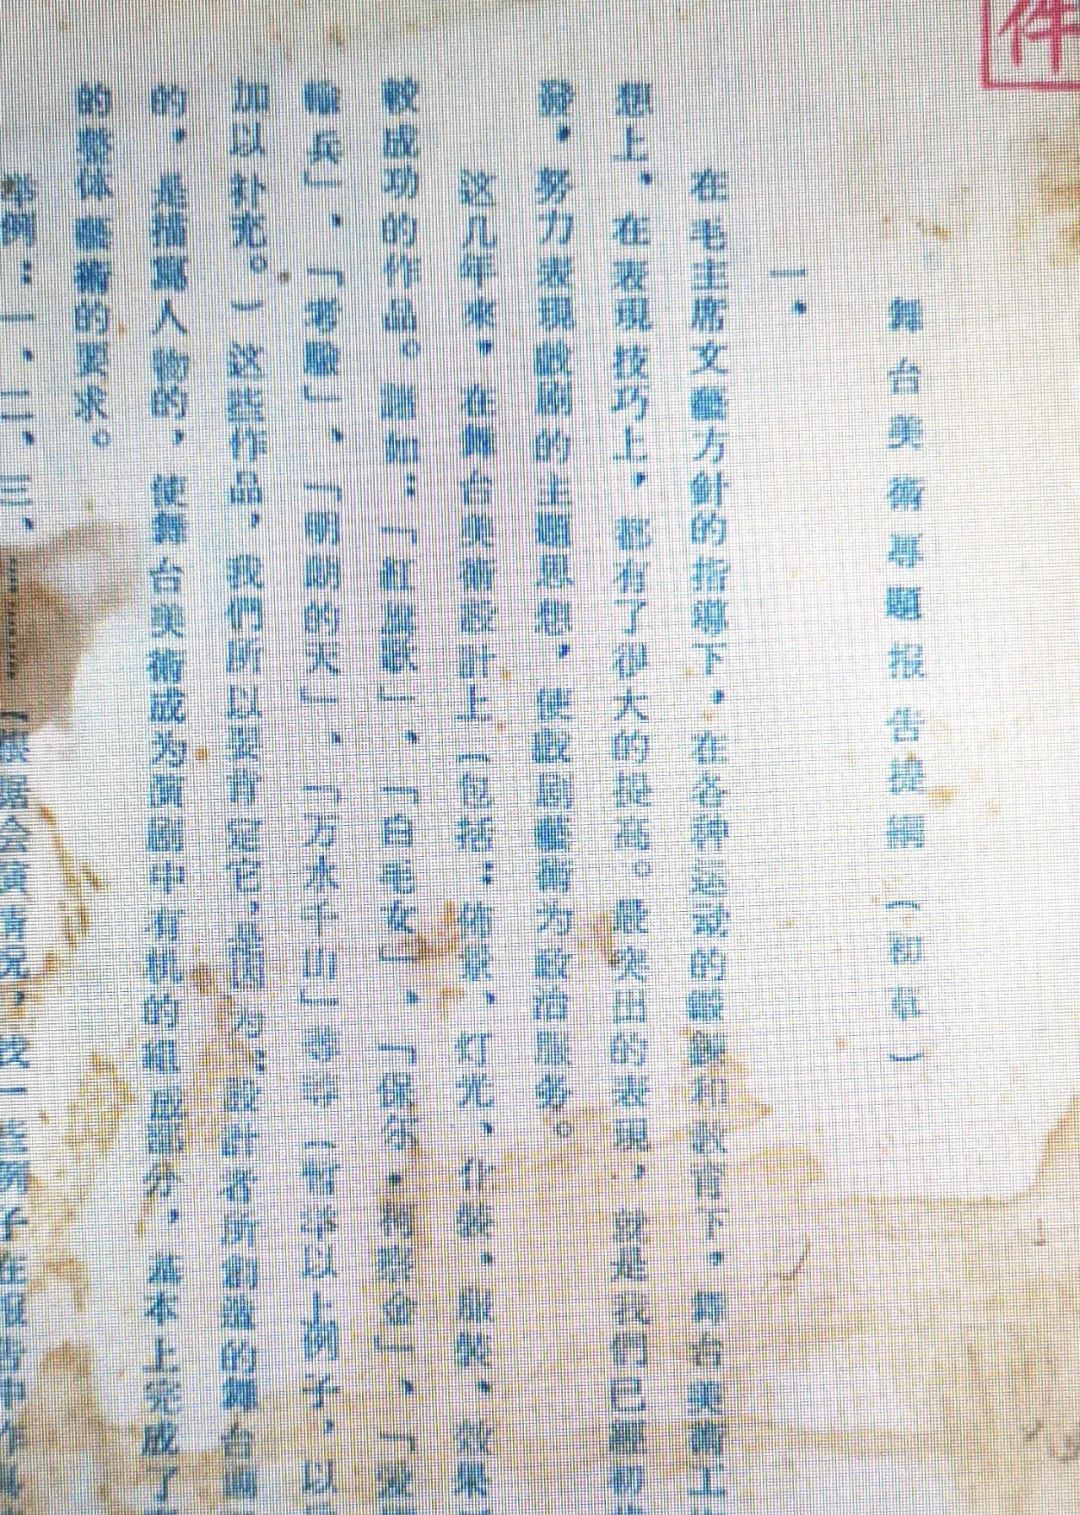 件
舞台美術專題报告提綱（初草）
一．
在毛主席文藝方針的指導下，在各种运动的鍛鍊和教育下，舞台美術工
想上、在表現技巧上，都有了很大的提高。最突出的表現，就是我們已經初
發，努力表現戲剧的主題思想，使戲剧藝術为政治服务。
这几年來，在舞台美術設計上（包括：佈景、灯光、化裝、服裝、效果
較成功的作品。諸如：「紅旗歌」、「白毛女」、「保尔．柯察金」、「
輸兵」、「考驗」、「明朗的天」、「万水千山」等等（暫举以上例子，以
加以补充。）这些作品，我們所以要肯定它，是因为，設計者所創造的舞台画
的，是描寫人物的，使舞台美術成为演剧中有机的組成部分，基本上完成了
的整体藝術的要求。
举例：一、二、三、………【根据会演情况，找一些例子在报告中作